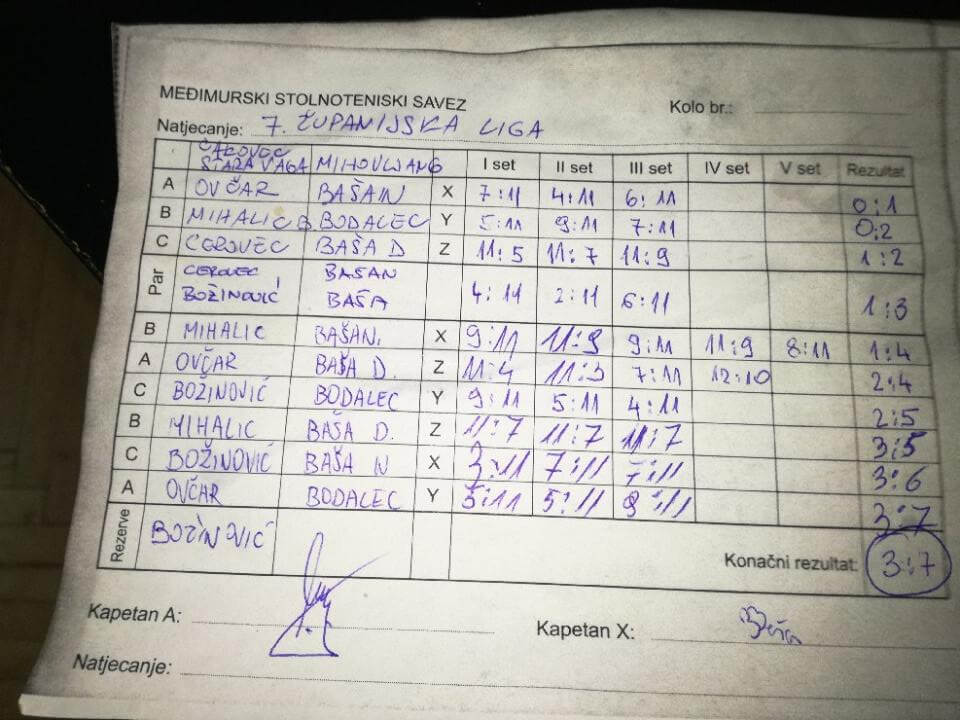 MEĐIMURSKI STOLNOTENISKI SAVEZ
Kolo br.:
Natjecanje: 7. ŽUPANIJSKA LIGA
ČAKOVEC STARA VAGA MIHOVLJANG I set II set III set IV set V set Rezultat
A OVČAR BAŠA N X 7:11 4:11 6:11 0:1
B MIHALIC B BODALEC Y 5:11 9:11 7:11 0:2
C CEROVEC BAŠA D Z 11:5 11:7 11:9 1:2
Par CEROVEC BAŠA N
BOŽINOVIĆ BAŠA 4:11 2:11 6:11 1:3
B MIHALIC BAŠA N. X 9:11 11:9 9:11 11:9 8:11 1:4
A OVČAR BAŠA D. Z 11:4 11:3 7:11 12:10 2:4
C BOŽINOVIĆ BODALEC Y 9:11 5:11 4:11 2:5
B MIHALIC BAŠA D. Z 11:7 11:7 11:7 3:5
C BOŽINOVIĆ BAŠA N X 3:11 7:11 7:11 3:6
A OVČAR BODALEC Y 5:11 5:11 8:11 3:7
Rezerve BOŽINOVIĆ
Konačni rezultat: 3:7
Kapetan A:
Kapetan X: Baša
Natjecanje: